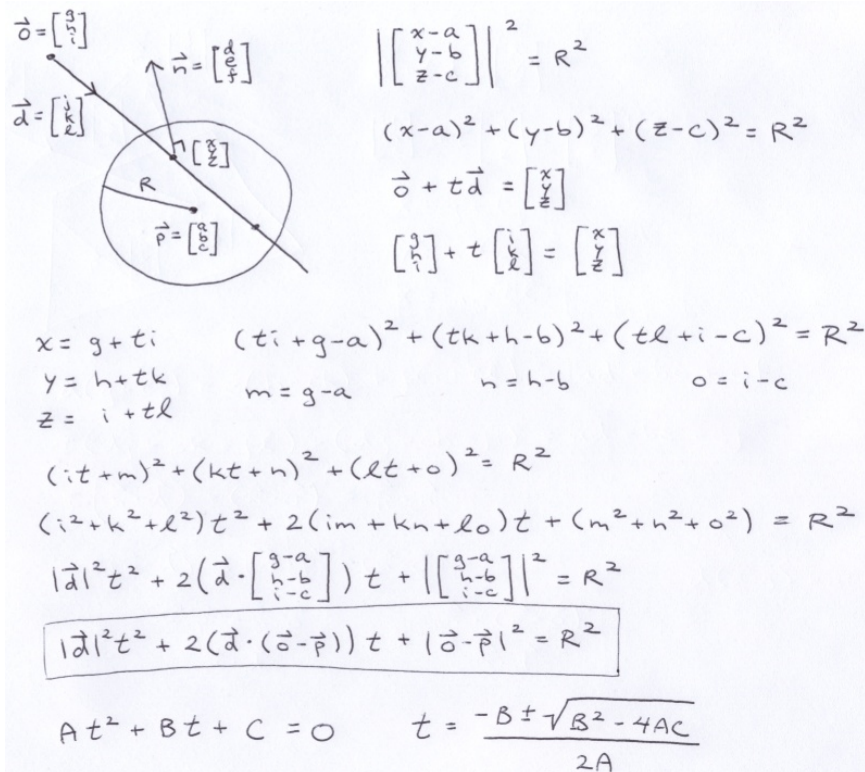 o⃗ = [g h i]
n⃗ = [d e f]
d⃗ = [j k l]
[x y z]
R
p⃗ = [a b c]
|[x-a y-b z-c]|² = R²
(x-a)² + (y-b)² + (z-c)² = R²
o⃗ + t d⃗ = [x y z]
[g h i] + t [i k l] = [x y z]
x = g + ti
y = h + tk
z = i + tl
(ti + g-a)² + (tk + h-b)² + (tl + i-c)² = R²
m = g-a n = h-b o = i-c
(it + m)² + (kt + n)² + (lt + o)² = R²
(i² + k² + l²)t² + 2(im + kn + lo)t + (m² + n² + o²) = R²
|d⃗|²t² + 2(d⃗ · [g-a h-b i-c])t + |[g-a h-b i-c]|² = R²
|d⃗|²t² + 2(d⃗ · (o⃗-p⃗))t + |o⃗-p⃗|² = R²
At² + Bt + C = 0 t = (-B ± √(B² - 4AC)) / 2A